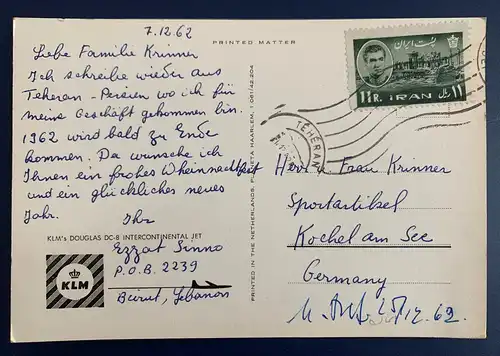 7.12.62
PRINTED MATTER
Liebe Familie Krinner
Ich schreibe wieder aus
Teheran - Persien wo ich für
meine Geschäft gekommen bin.
1962 wird bald zu Ende
kommen. Da wünsche ich
Ihnen ein frohes Wheinnachtfest
und ein glückliches neues
Jahr.
Ihr
KLM's DOUGLAS DC-8 INTERCONTINENTAL JET
Ezzat Sinno
P.O.B. 2239
Beirut, Lebanon
KLM
PRINTED IN THE NETHERLANDS, PLANETA HAARLEM, 1.061/42.204
پست ایران
11 R. IRAN ۱۱ ریال
TÉHÉRAN
Herr u. Frau Krinner
Sportartiksel
Kochel am See
Germany
12.62.